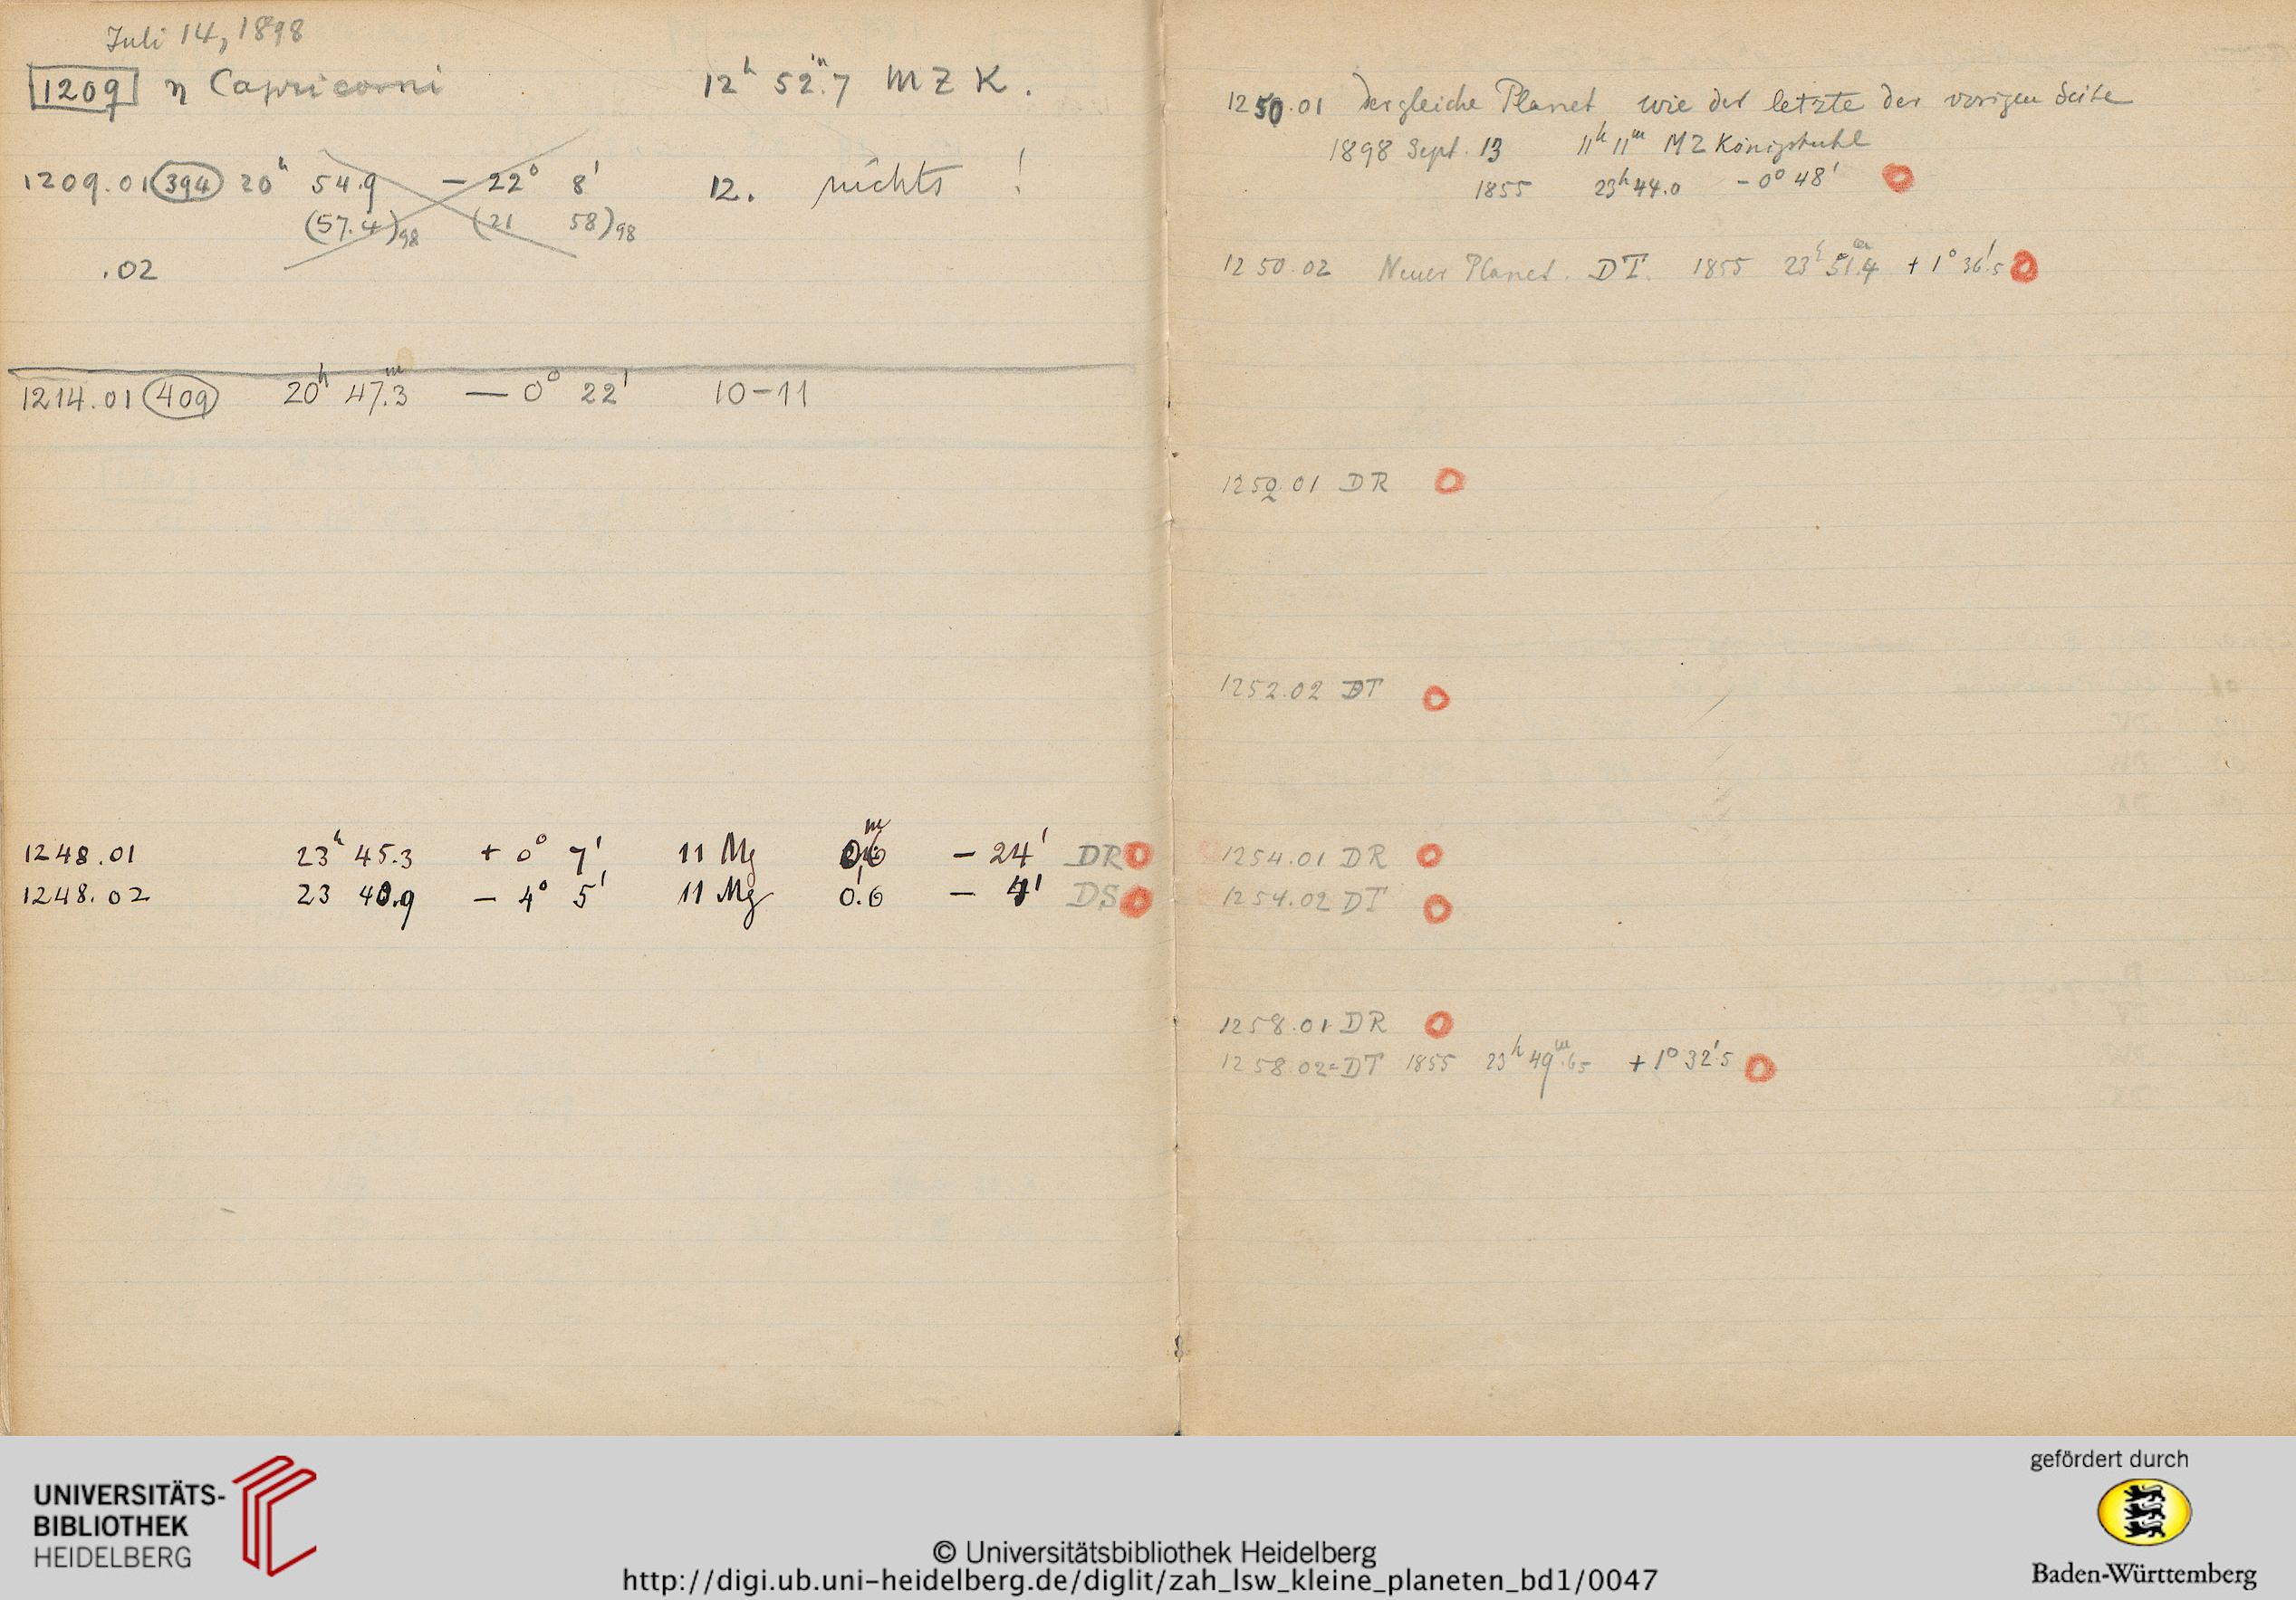 Juli 14, 1898
1209 η Capricorni 12h 52m.7 M Z K.
1209.01 (394) 20h 54.9 − 22° 8' 12. nichts !
(57.4)98 (21 58)98
.02
1214.01 (409) 20h 47m.3 − 0° 22' 10−11
1248.01 23h 45.3 + 0° 7' 11 Mg 0m.6 − 24' DR
1248.02 23 40.9 − 4° 5' 11 Mg 0.6 − 4' DS
1250.01 Der gleiche Planet wie der letzte der vorigen Seite
1898 Sept. 13 11h 11m MZ Königstuhl
1855 23h 44.0 − 0° 48'
1250.02 Neuer Planet. DT. 1855 23h 51m.4 + 1° 36'.5
1252.01 DR
1252.02 DT
1254.01 DR
1254.02 DT
1258.01 DR
1258.02 = DT 1855 23h 49m.65 + 1° 32'.5
UNIVERSITÄTS-
BIBLIOTHEK
HEIDELBERG
© Universitätsbibliothek Heidelberg
http://digi.ub.uni-heidelberg.de/diglit/zah_lsw_kleine_planeten_bd1/0047
gefördert durch
Baden-Württemberg